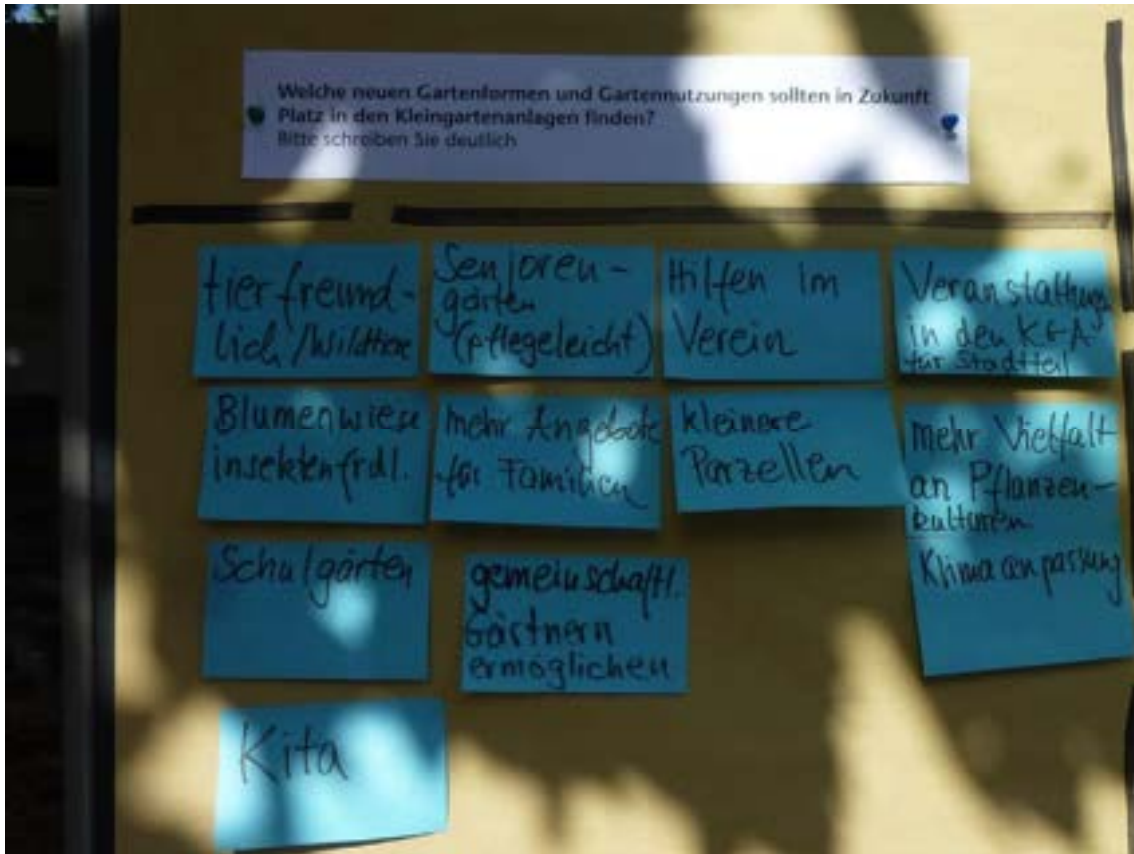 Welche neuen Gartenformen und Gartennutzungen sollten in Zukunft
Platz in den Kleingartenanlagen finden?
Bitte schreiben Sie deutlich
tierfreund-
lich/Wildtiere
Senioren-
gärten
(pflegeleicht)
Hilfen im
Verein
Veranstaltungen
in den KGA
für Stadtteil
Blumenwiese
insektenfrdl.
mehr Angebote
für Familien
kleinere
Parzellen
mehr Vielfalt
an Pflanzen-
kulturen
Klimaanpassung
Schulgärten
gemeinschaftl.
Gärtnern
ermöglichen
Kita